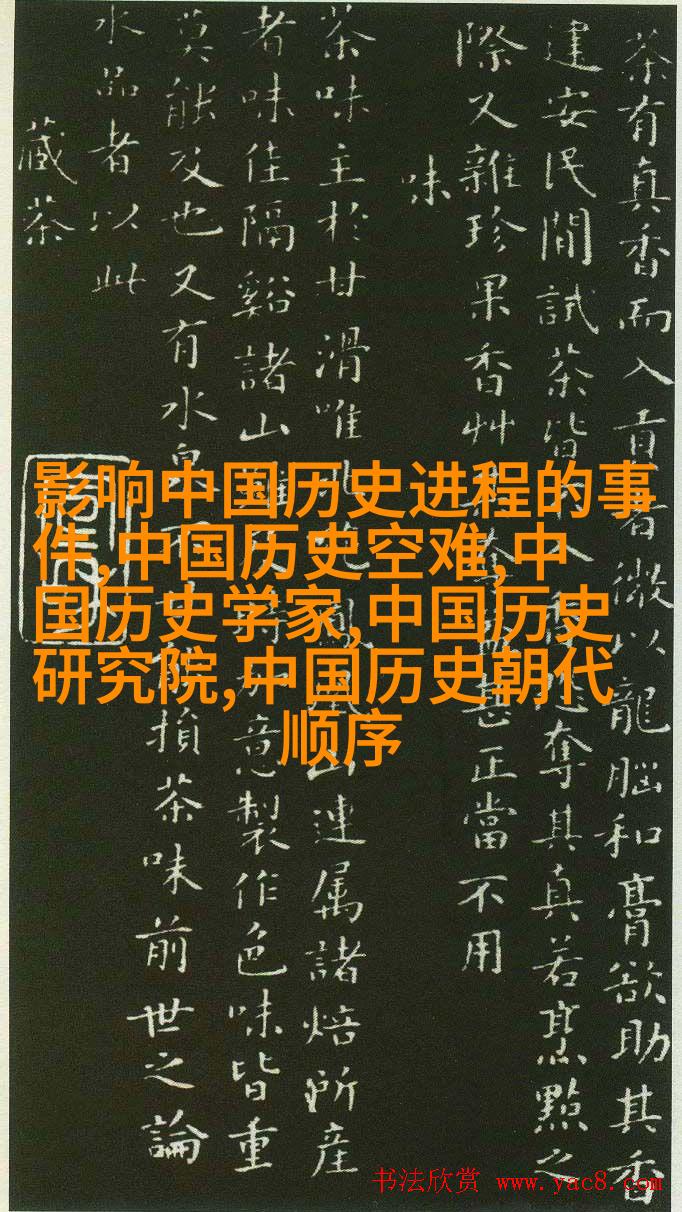 茶有真香而入貢者微以龍腦和膏欲助其香
建安民間試茶皆入奪其真若烹點之
際又雜珍果香艸奪甚正當不用
味
茶味主於甘滑唯北山連属諸焙所産
者味佳隔谿諸山意製作色味皆重
莫能及也又有水泉損茶味前世之論
水品者以此
藏茶
影响中国历史进程的事
件,中国历史空难,中
国历史学家,中国历史
研究院,中国历史朝代
顺序
书法欣赏 www.yac8.com